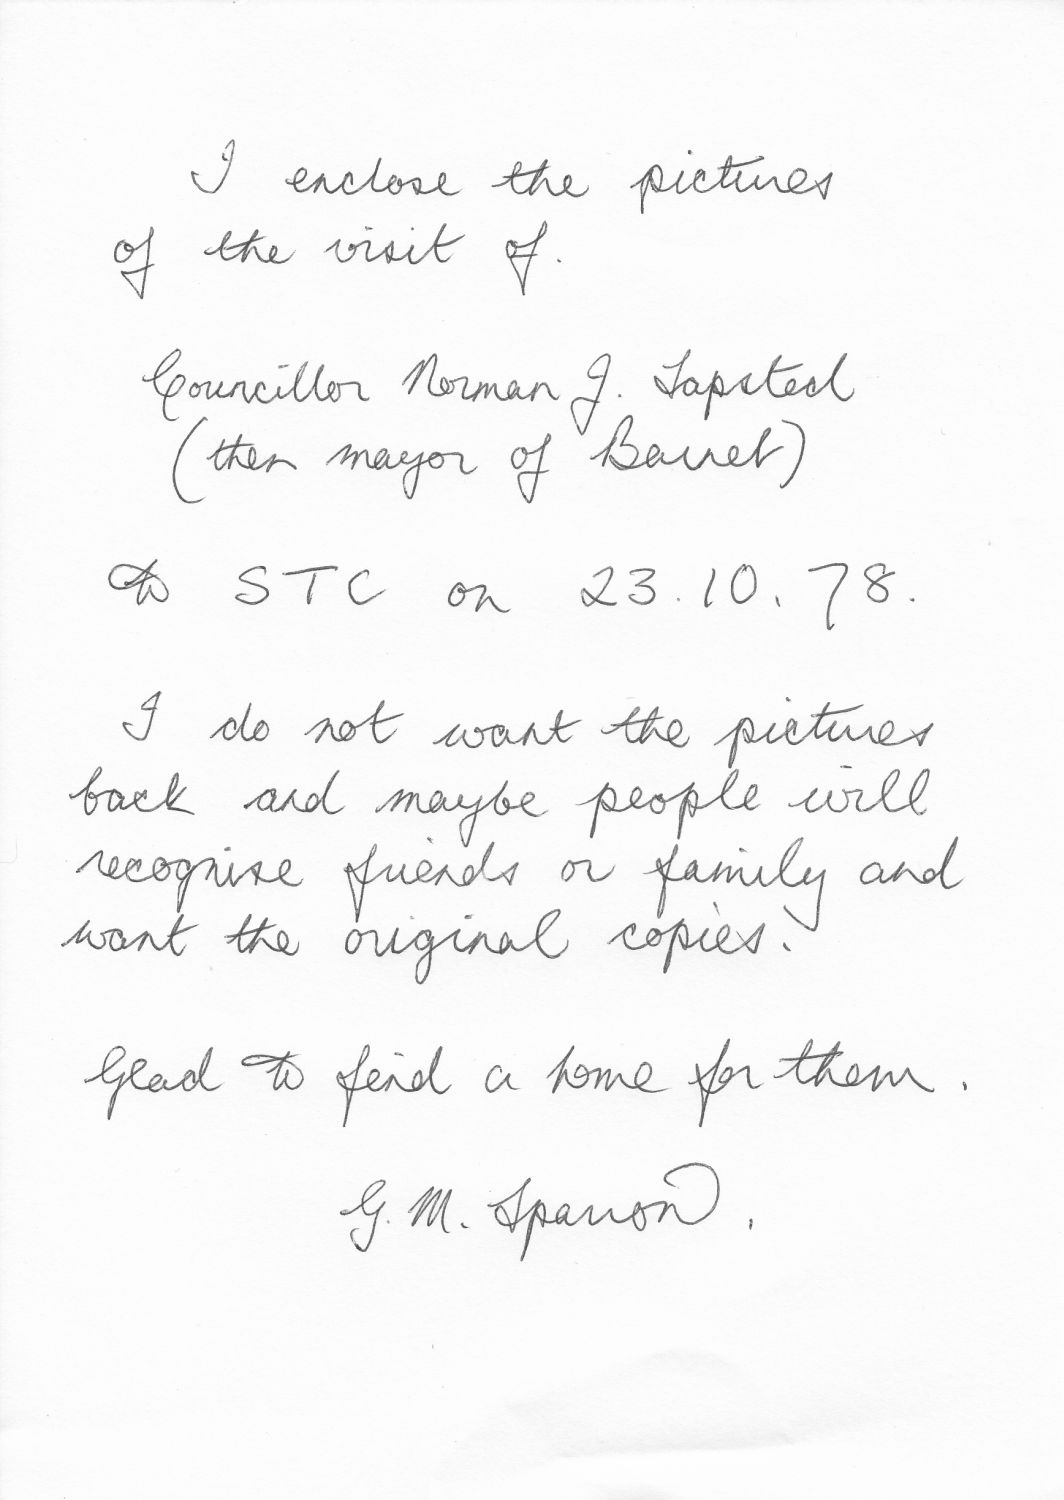 I enclose the pictures
of the visit of.
Councillor Norman J. Sapsted
(then mayor of Barnet)
to STC on 23.10.78.
I do not want the pictures
back and maybe people will
recognise friends or family and
want the original copies.
Glad to find a home for them.
G. M. Sparrow.